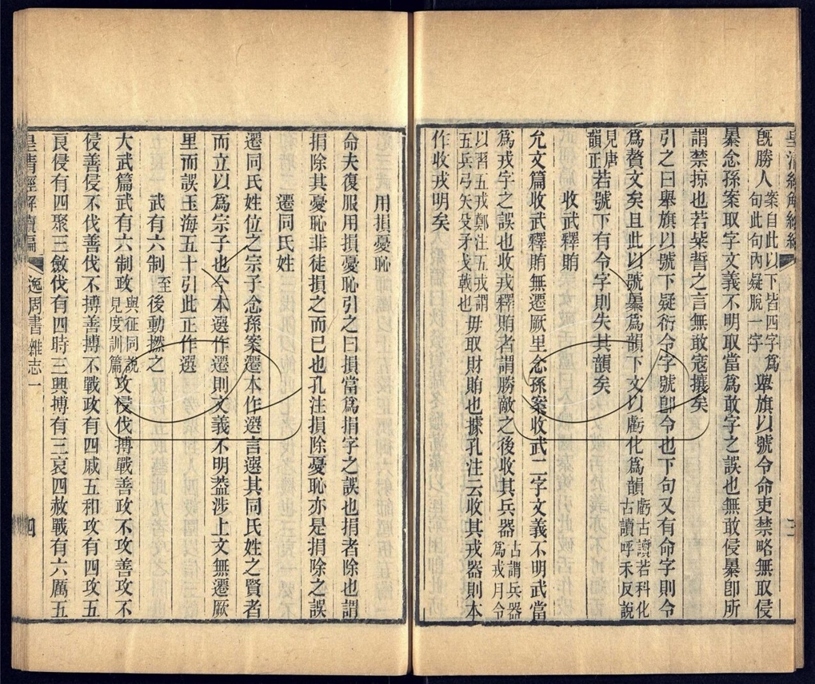 既勝人案自此以下皆四字爲句此句內疑脫一字舉旗以號令命吏禁略無取侵
暴念孫案取字文義不明取當爲敢字之誤也無敢侵暴卽所
謂禁掠也若棐誓之言無敢寇攘矣
引之曰舉旗以號下疑衍令字號卽令也下句又有命字則令
爲贅文矣且此以號暴爲韻下文以虧化爲韻虧古讀若科化古讀呼禾反說
見唐韻正若號下有令字則失其韻矣
收武釋賄
允文篇收武釋賄無遷厥里念孫案收武二字文義不明武當
爲戎字之誤也收戎釋賄者謂勝敵之後收其兵器古謂兵器爲戎月令
以習五戎鄭注五戎謂五兵弓矢殳矛戈戟也毋取財賄也據孔注云收其戎器則本
作收戎明矣
用損憂恥
命夫復服用損憂恥引之曰損當爲捐字之誤也捐者除也謂
捐除其憂恥非徒損之而已也孔注損除憂恥亦是捐除之誤
遷同氏姓
遷同氏姓位之宗子念孫案遷本作選言選其同氏姓之賢者
而立以爲宗子也今本選作遷則文義不明蓋涉上文無遷厥
里而誤玉海五十引此正作選
武有六制至後動撚之
大武篇武有六制政與征同說見度訓篇攻侵伐搏戰善政不攻善攻不
侵善侵不伐善伐不搏善搏不戰政有四戚五和攻有四攻五
良侵有四聚三斂伐有四時三興搏有三哀四赦戰有六厲五
皇清經解續編
逸周書雜志一
四